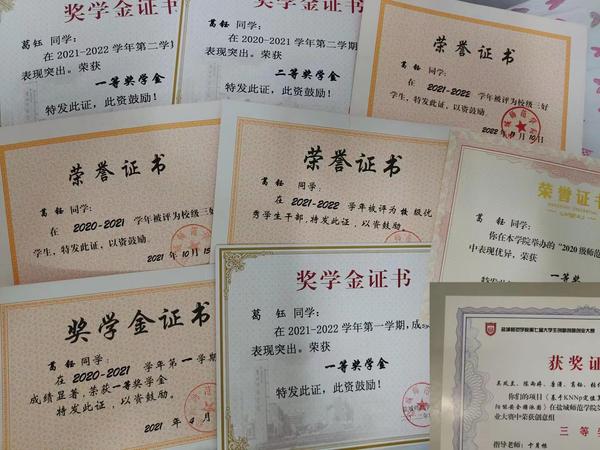 奖学金证书
葛钰同学:
在2021-2022学年第二学
表现突出。荣获
一等奖学金
特发此证，此资鼓励!
奖学金证书
葛钰同学:
在2020-2021学年第二学期
表现突出。荣获
二等奖学金
特发此证，此资鼓励!
荣誉证书
葛钰 同学:
在 2021-2022 学年被评为校级三好
学生，特发此证，以资鼓励。
2022年 月10日
荣誉证书
葛钰 同学:
在 2020-2021 学年被评为校级三好
学生，特发此证，以资鼓励。
2021年10月15
荣誉证书
葛钰 同学:
在 2021-2022 学年被评为校级优
秀学生干部，特发此证，以资鼓励。
荣誉证书
葛钰 同学:
你在本学院举办的“2020级师范
中表现优异，荣获
一等
特发
奖学金证书
葛钰 同学:
在 2020-2021 学年第一学期
成绩显著，荣获一等奖学金
特发此证，以资鼓励。
2021年4月
奖学金证书
葛钰同学:
在2021-2022学年第一学期，成
表现突出。荣获
一等奖学金
特发此证，此资鼓励!
盐城师范学院第七届大学生创新创业大赛
获奖证
葛钰
你们的项目《基于KNNp定位算
在盐城师范学院
业大赛中荣获创意组
三等奖
指导老师: